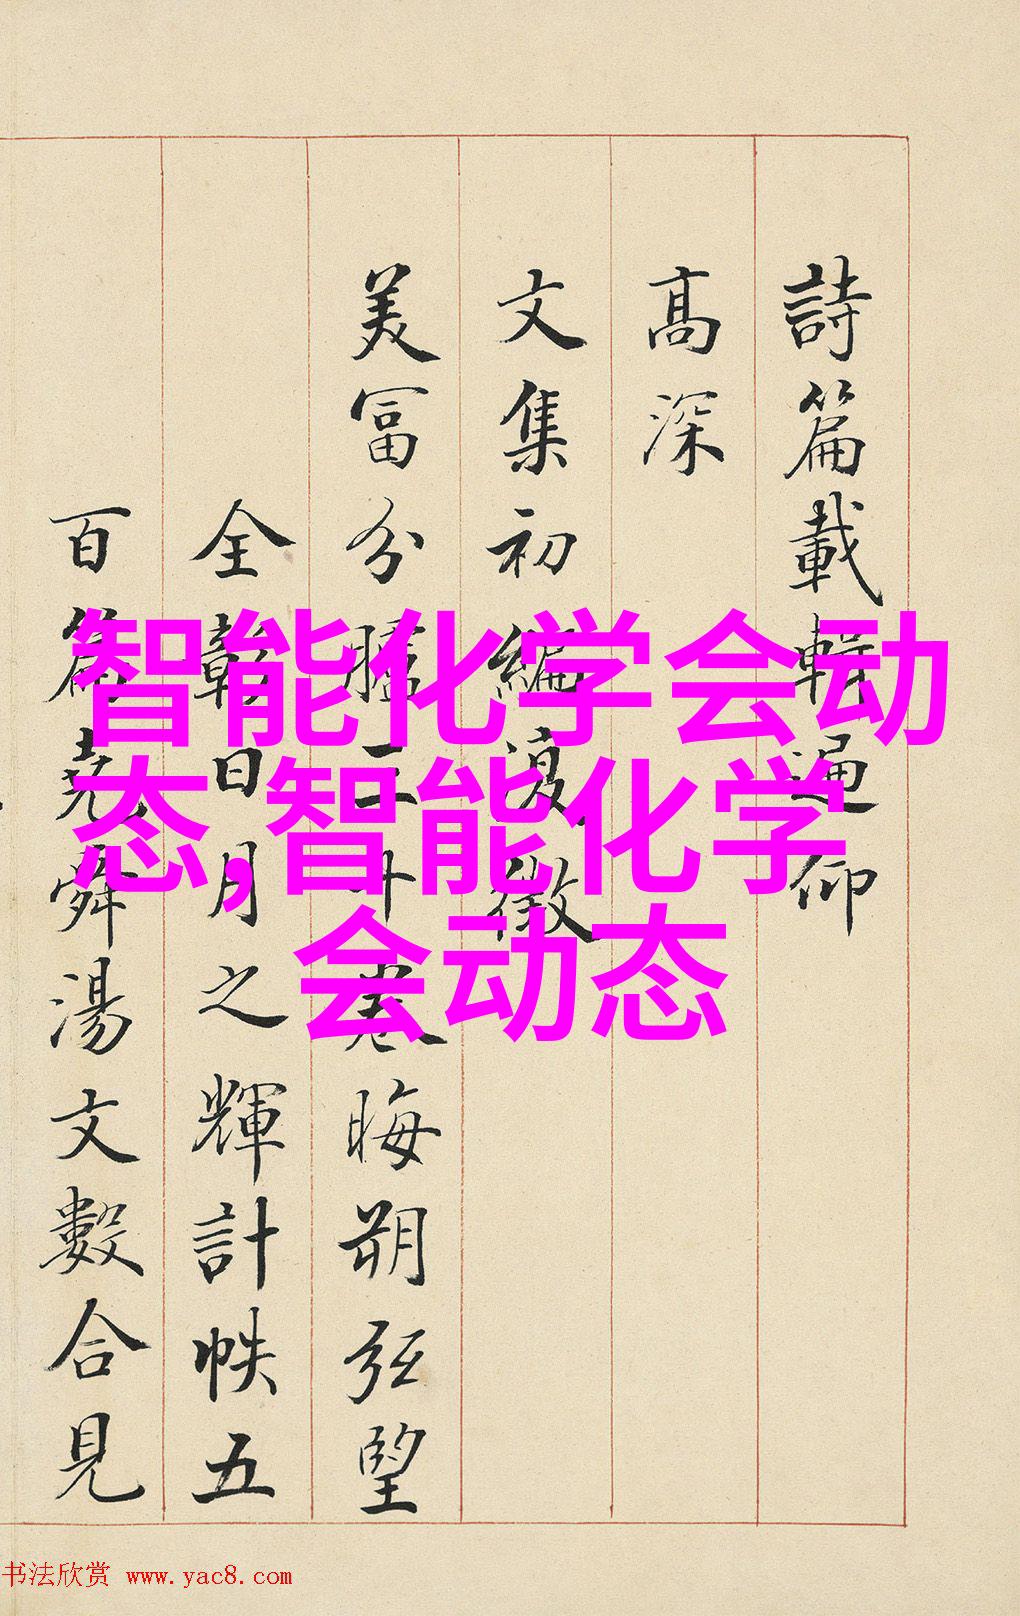 詩篇載輯遍仰
高深
文集初編復徵
美富分臚三十卷晦朔弦望
全彰日月之輝計帙五
百篇堯舜湯文數合見
智能化学会动
态,智能化学
会动态
书法欣赏 www.yac8.com